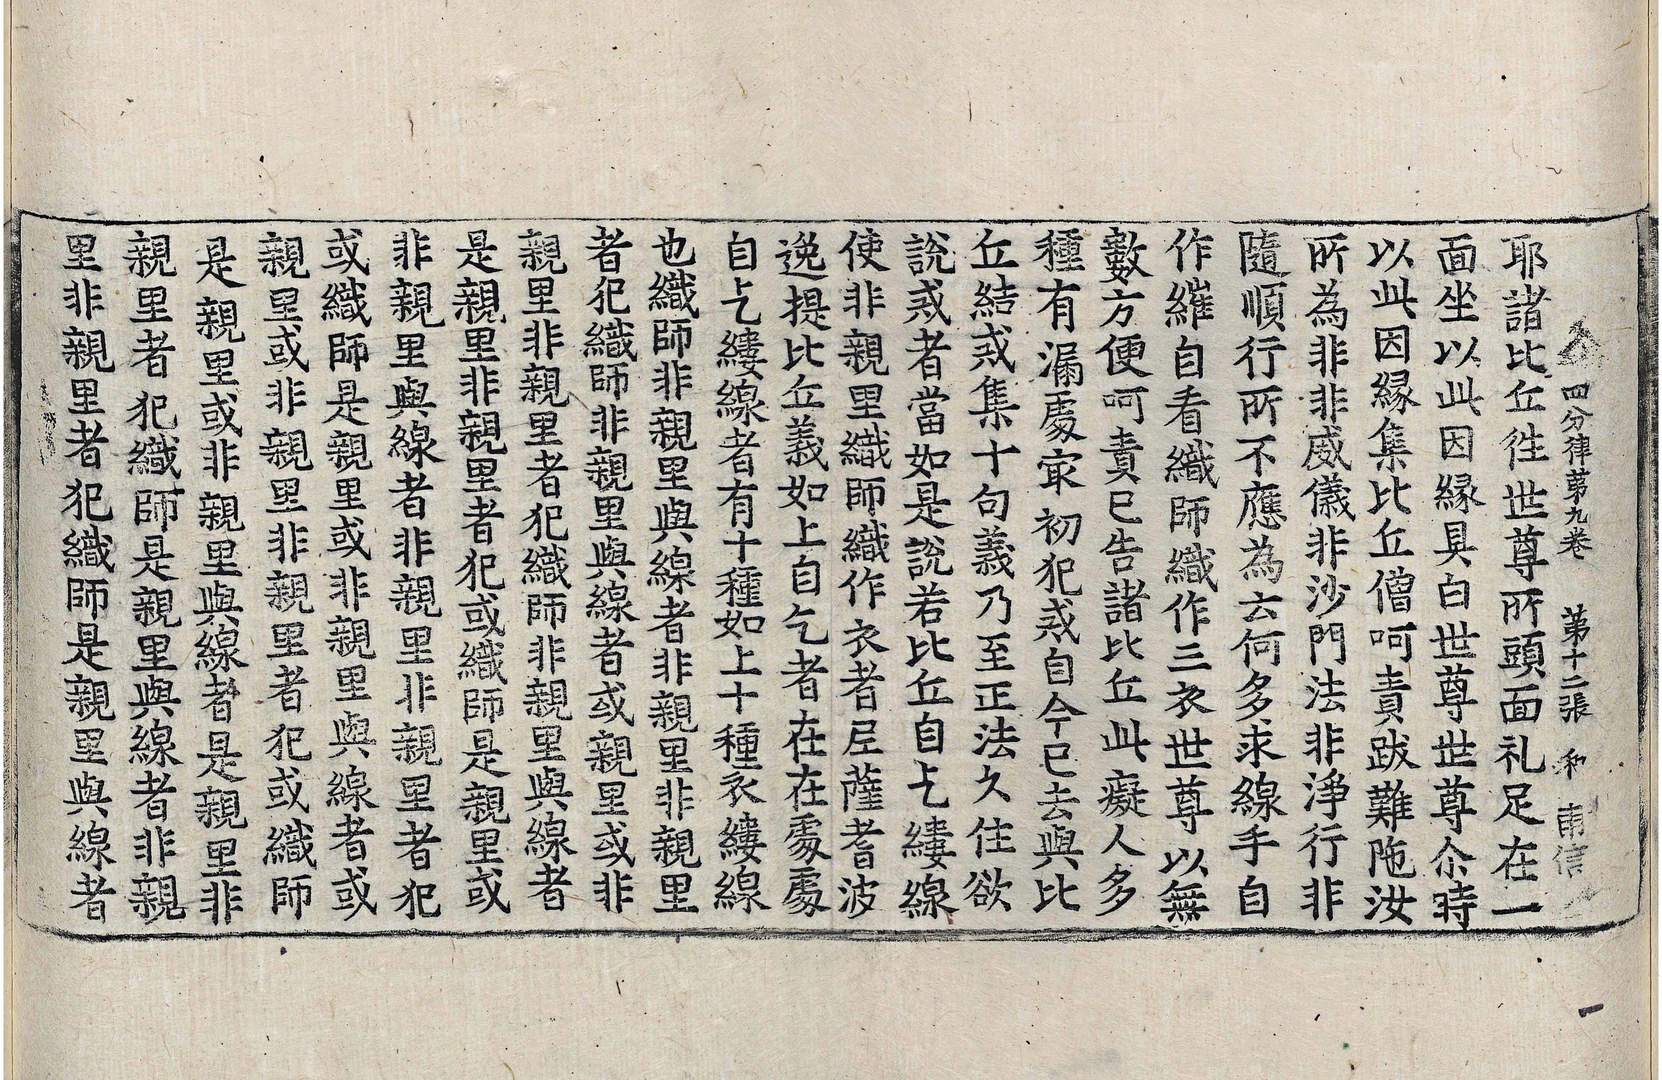 四分律第九卷 第十二張 和 甫信
耶諸比丘徃世尊所頭面礼足在一
面坐以此因縁具白世尊世尊尒時
以此因縁集比丘僧呵責跋難陁汝
所為非非威儀非沙門法非淨行非
隨順行所不應為云何多求線手自
作繀自看織師織作三衣世尊以無
數方便呵責已告諸比丘此癡人多
種有漏處㝡初犯戒自今已去與比
丘結戒集十句義乃至正法久住欲
說戒者當如是說若比丘自乞縷線
使非親里織師織作衣者尼薩耆波
逸提比丘義如上自乞者在在處處
自乞縷線者有十種如上十種衣縷線
也織師非親里與線者非親里非親里
者犯織師非親里與線者或親里或非
親里非親里者犯織師非親里與線者
是親里非親里者犯或織師是親里或
非親里與線者非親里非親里者犯
或織師是親里或非親里與線者或
親里或非親里非親里者犯或織師
是親里或非親里與線者是親里非
親里者犯織師是親里與線者非親
里非親里者犯織師是親里與線者